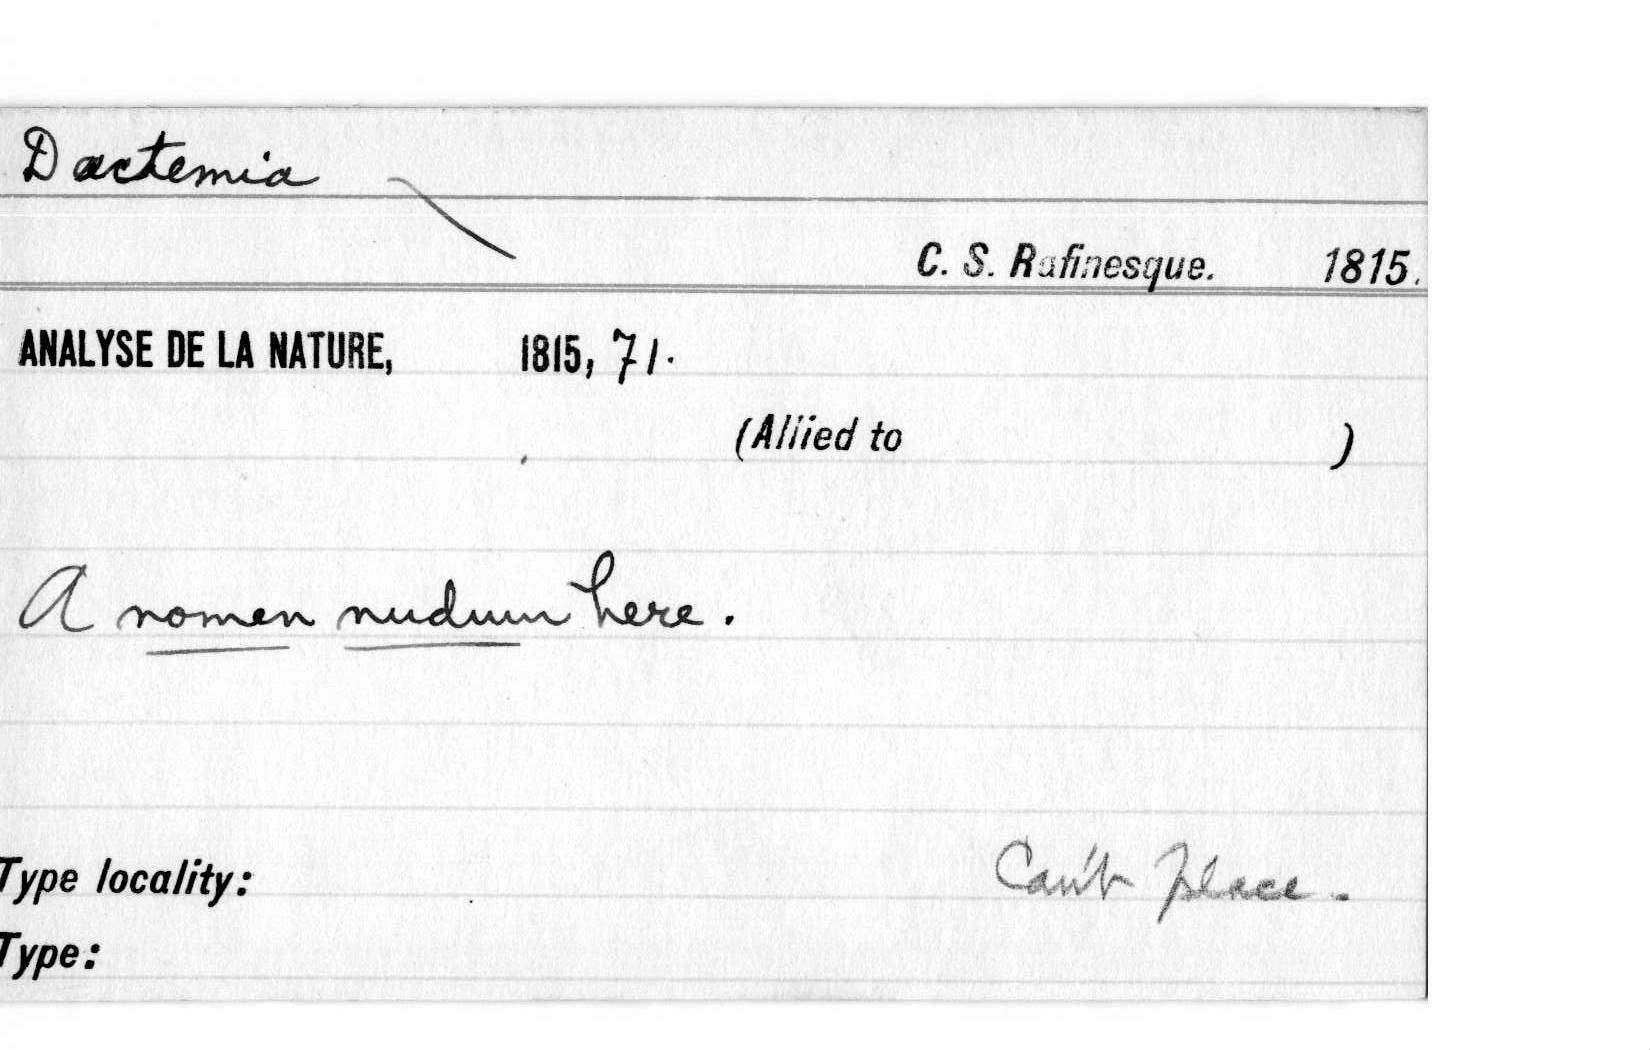 Dactemia
C. S. Rafinesque. 1815.
ANALYSE DE LA NATURE, 1815, 71.
(Allied to )
A nomen nudum here.
Type locality: Can't place.
Type: